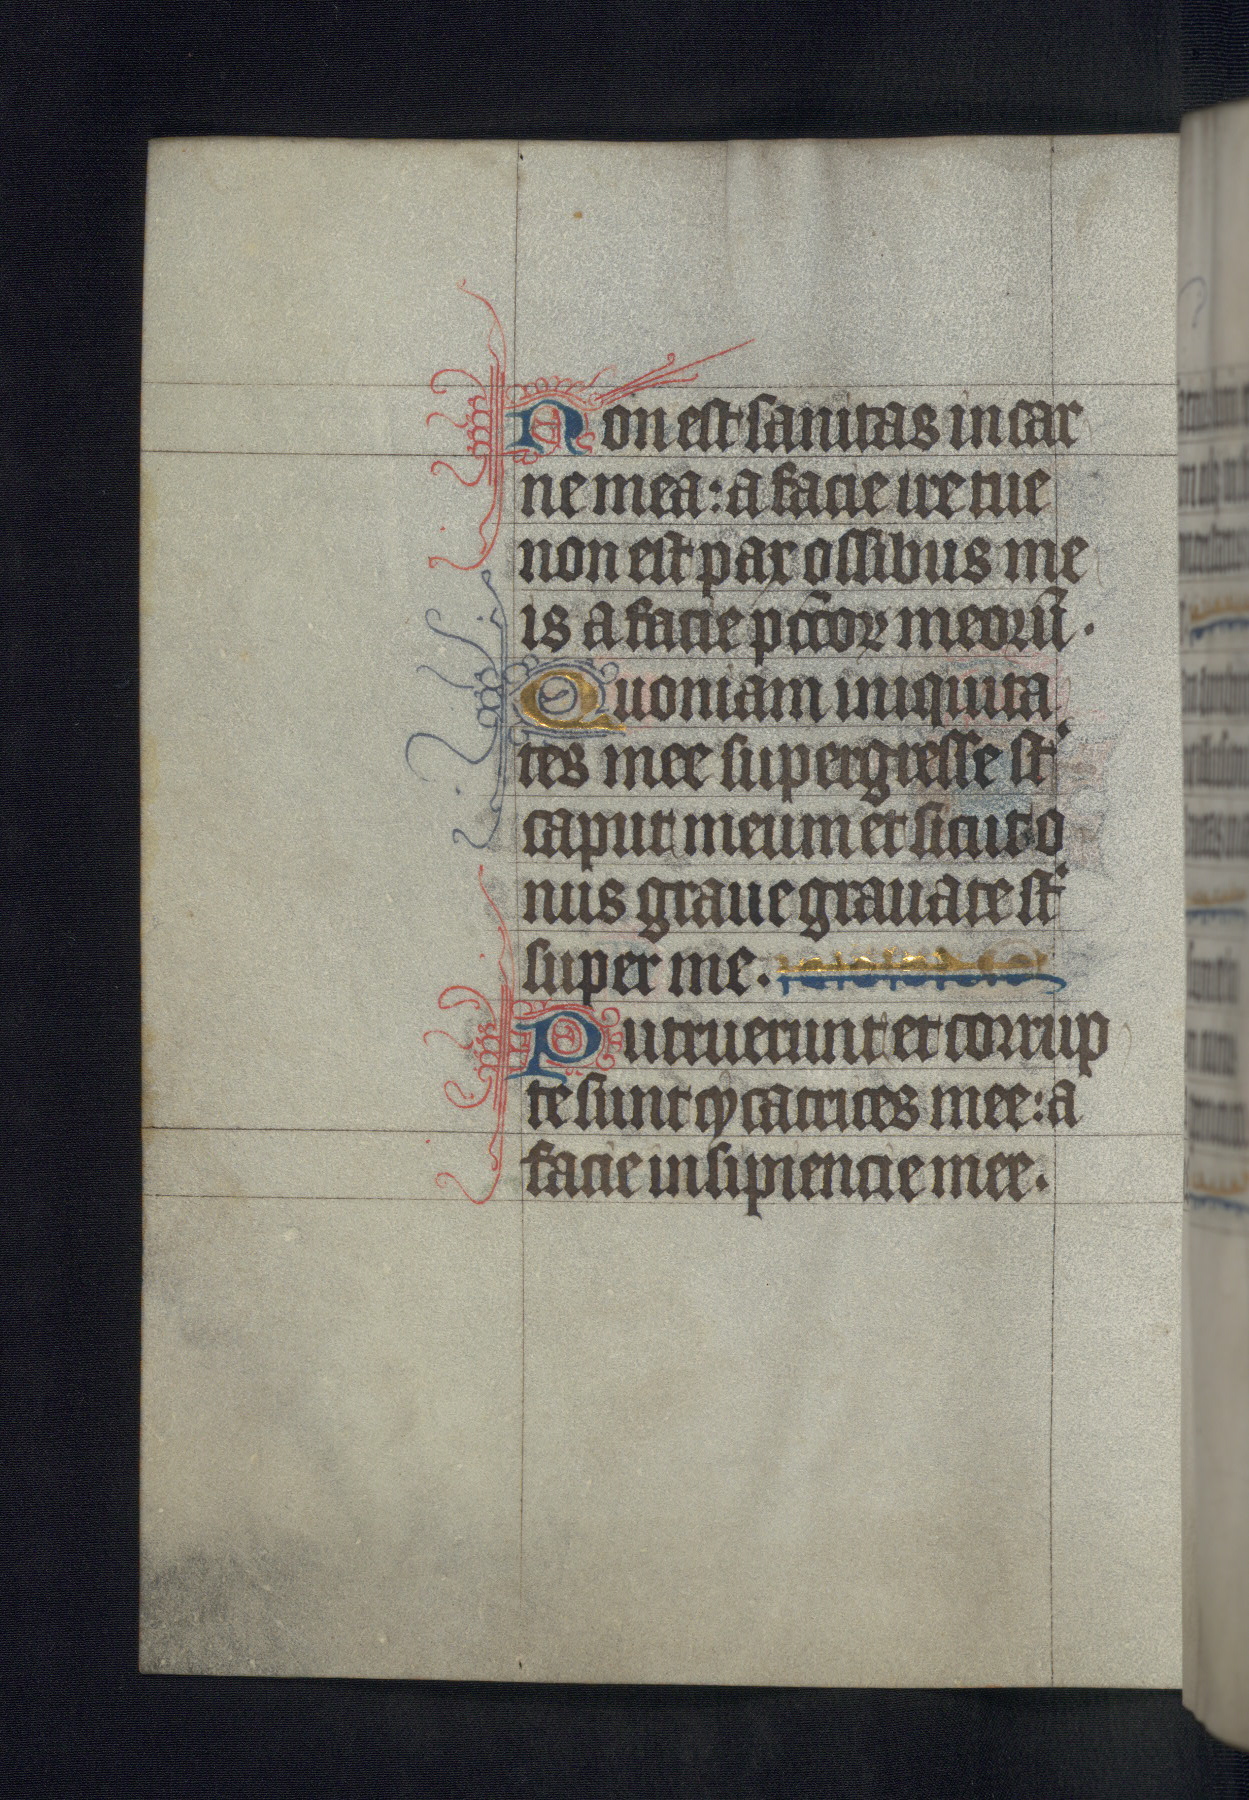 Non est sanitas in car
ne mea: a facie ire tue
non est pax ossibus me
is a facie pccor meorū.
Quoniam iniquita
tes mee supergresse st̄
caput meum et sicut o
nus graue grauate st̄
super me.
Putruerunt et corrup
te sunt cycatrices mee: a
facie insipiencie mee.